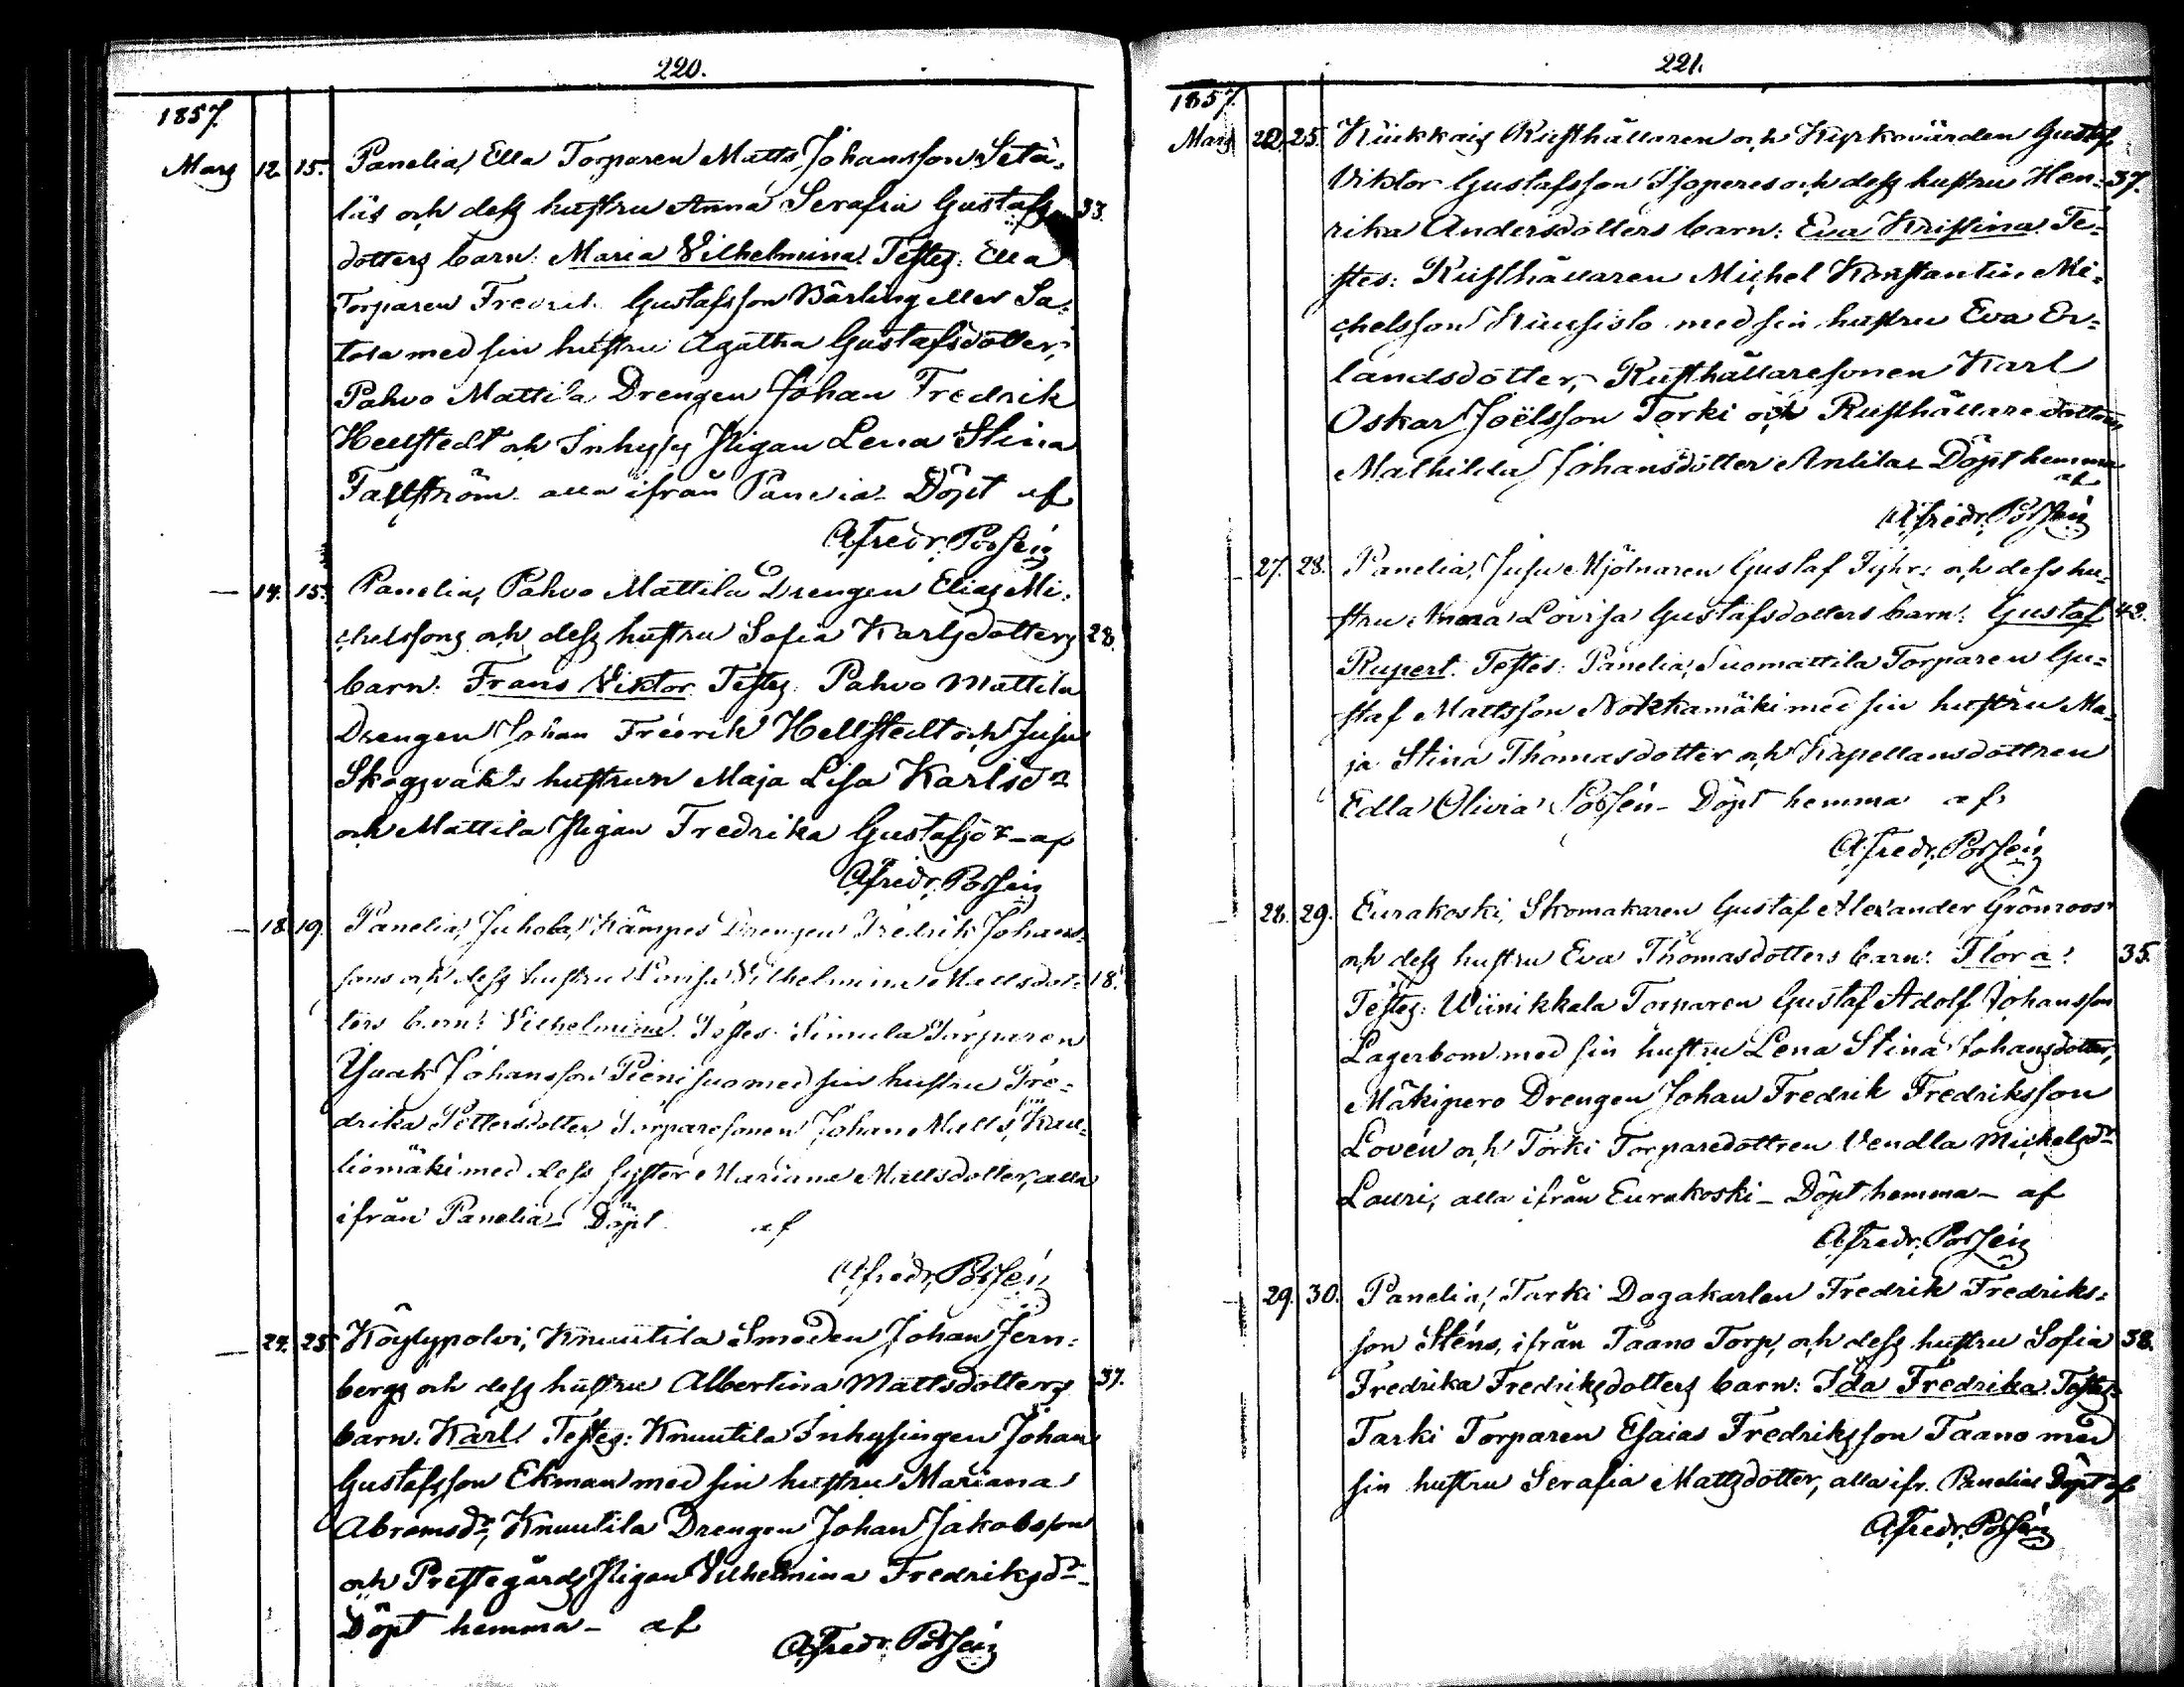 220.
1857.
Mars 12. 15. Panelia, Ella Torparen Matts Johansson Setä-
läs och dess hustru Anna Serafia Gustafs 33.
dotters barn: Maria Vilhelmina. Testes: Ella
Torparen Fredrik Gustafsson Bärling eller Sa-
tola med sin hustru Agatha Gustafsdotter,
Pahvo Mattila Drengen Johan Fredrik
Hellstedt och Inhyses Pigan Lena Stina
Fallström alla ifrån Panelia. Döpt af
A. Fredr. Polsén
— 14. 15. Panelia, Pahvo Mattila Drengen Elias Mi-
chelssons och dess hustru Sofia Karlsdotters 28.
barn: Frans Viktor. Testes: Pahvo Mattila
Drengen Johan Fredrik Hellstedt och Jusu
Skogsvakts hustrun Maja Lisa Karlsdr
och Mattila Pigan Fredrika Gustafsdr - af
A. Fredr. Polsén
— 18. 19. Panelia, Juhola, Kämpes Drengen Fredrik Johans-
sons och dess hustru Lovisa Vilhelmina Mattsdot- 18.
ters barn: Vilhelmina. Testes: Simula Torparen
Isaak Johansson Pienisuo med sin hustru Fre-
drika Pettersdotter, Torparesonen Johan Mattsson
liomäki med dess syster Mariana Mattsdotter, alla
ifrån Panelia - Döpt af
A. Fredr. Polsén
— 24. 25. Köylypolvi, Knuutila Smeden Johan Jern-
bergs och dess hustru Albertina Mattsdotters 37.
barn: Karl. Testes: Knuutila Inhysingen Johan
Gustafsson Ekman med sin hustru Mariana
Abramsdr, Knuutila Drengen Johan Jakobsson
och Prestegårds Pigan Vilhelmina Fredriksdr -
Döpt hemma - af
A. Fredr. Polsén
221.
1857.
Mars 22. 25. Kiukkais Rusthållaren och Kyrkovärden Gustaf
Viktor Gustafsson Isoperes och dess hustru Hen- 37.
rika Andersdotters barn: Eva Kristina. Te-
stes: Rusthållaren Michel Konstantin Mi-
chelsson Kuusisto med sin hustru Eva Er-
landsdotter, Rusthållaresonen Karl
Oskar Joëlsson Torki och Rusthållaredottren
Mathilda Johansdotter Anttila - Döpt hemma
af
A. Fredr. Polsén
— 27. 28. Panelia, Jusu Mjölnaren Gustaf Fyhr: och dess hu-
stru Anna Lovisa Gustafsdotters barn: Gustaf 42.
Rupert. Testes: Panelia, Suomattila Torparen Gu-
staf Mattsson Nokkamäki med sin hustru Ma-
ja Stina Thomasdotter och Kapellansdottren
Edla Olivia Polsén - Döpt hemma af
A. Fredr. Polsén
— 28. 29. Eurakoski, Skomakaren Gustaf Alexander Grönroos
och dess hustru Eva Thomasdotters barn: Flora. 35.
Testes: Wiinikkala Torparen Gustaf Adolf Johansson
Lagerbom med sin hustru Lena Stina Johansdotter,
Mäkipero Drengen Johan Fredrik Fredriksson
Lovén och Torki Torparedottren Vendla Michelsdr
Lauri, alla ifrån Eurakoski - Döpt hemma - af
A. Fredr. Polsén
— 29. 30. Panelia, Tarki Dagakarlen Fredrik Fredriks-
son Sténs, ifrån Taano Torp, och dess hustru Sofia 38.
Fredrika Fredriksdotters barn: Ida Fredrika. Testes:
Tarki Torparen Esaias Fredriksson Taano med
sin hustru Serafia Mattsdotter, alla ifr. Panelia Döpt af
A. Fredr. Polsén